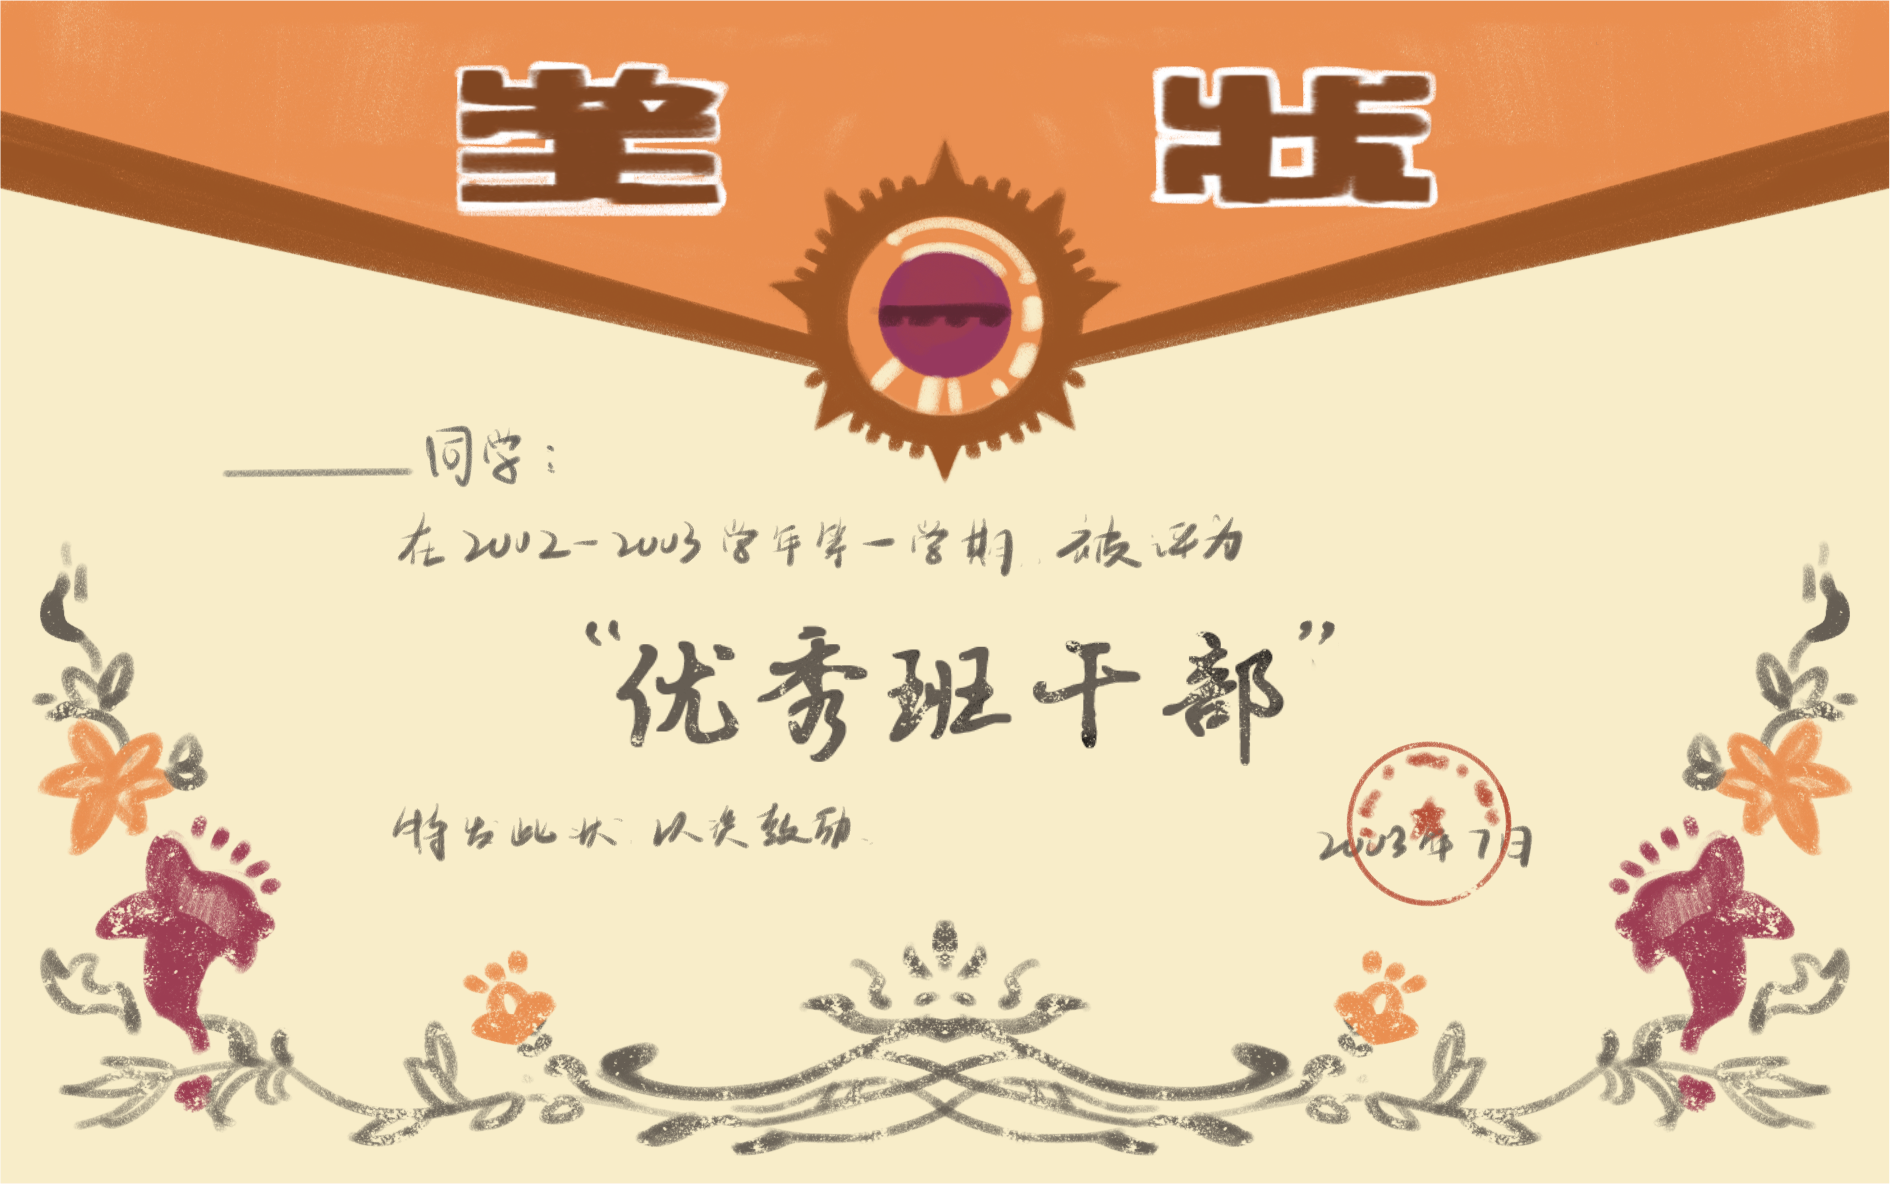 奖状
同学：
在2002-2003学年第一学期 被评为
“优秀班干部”
特发此状 以资鼓励
2003年7月